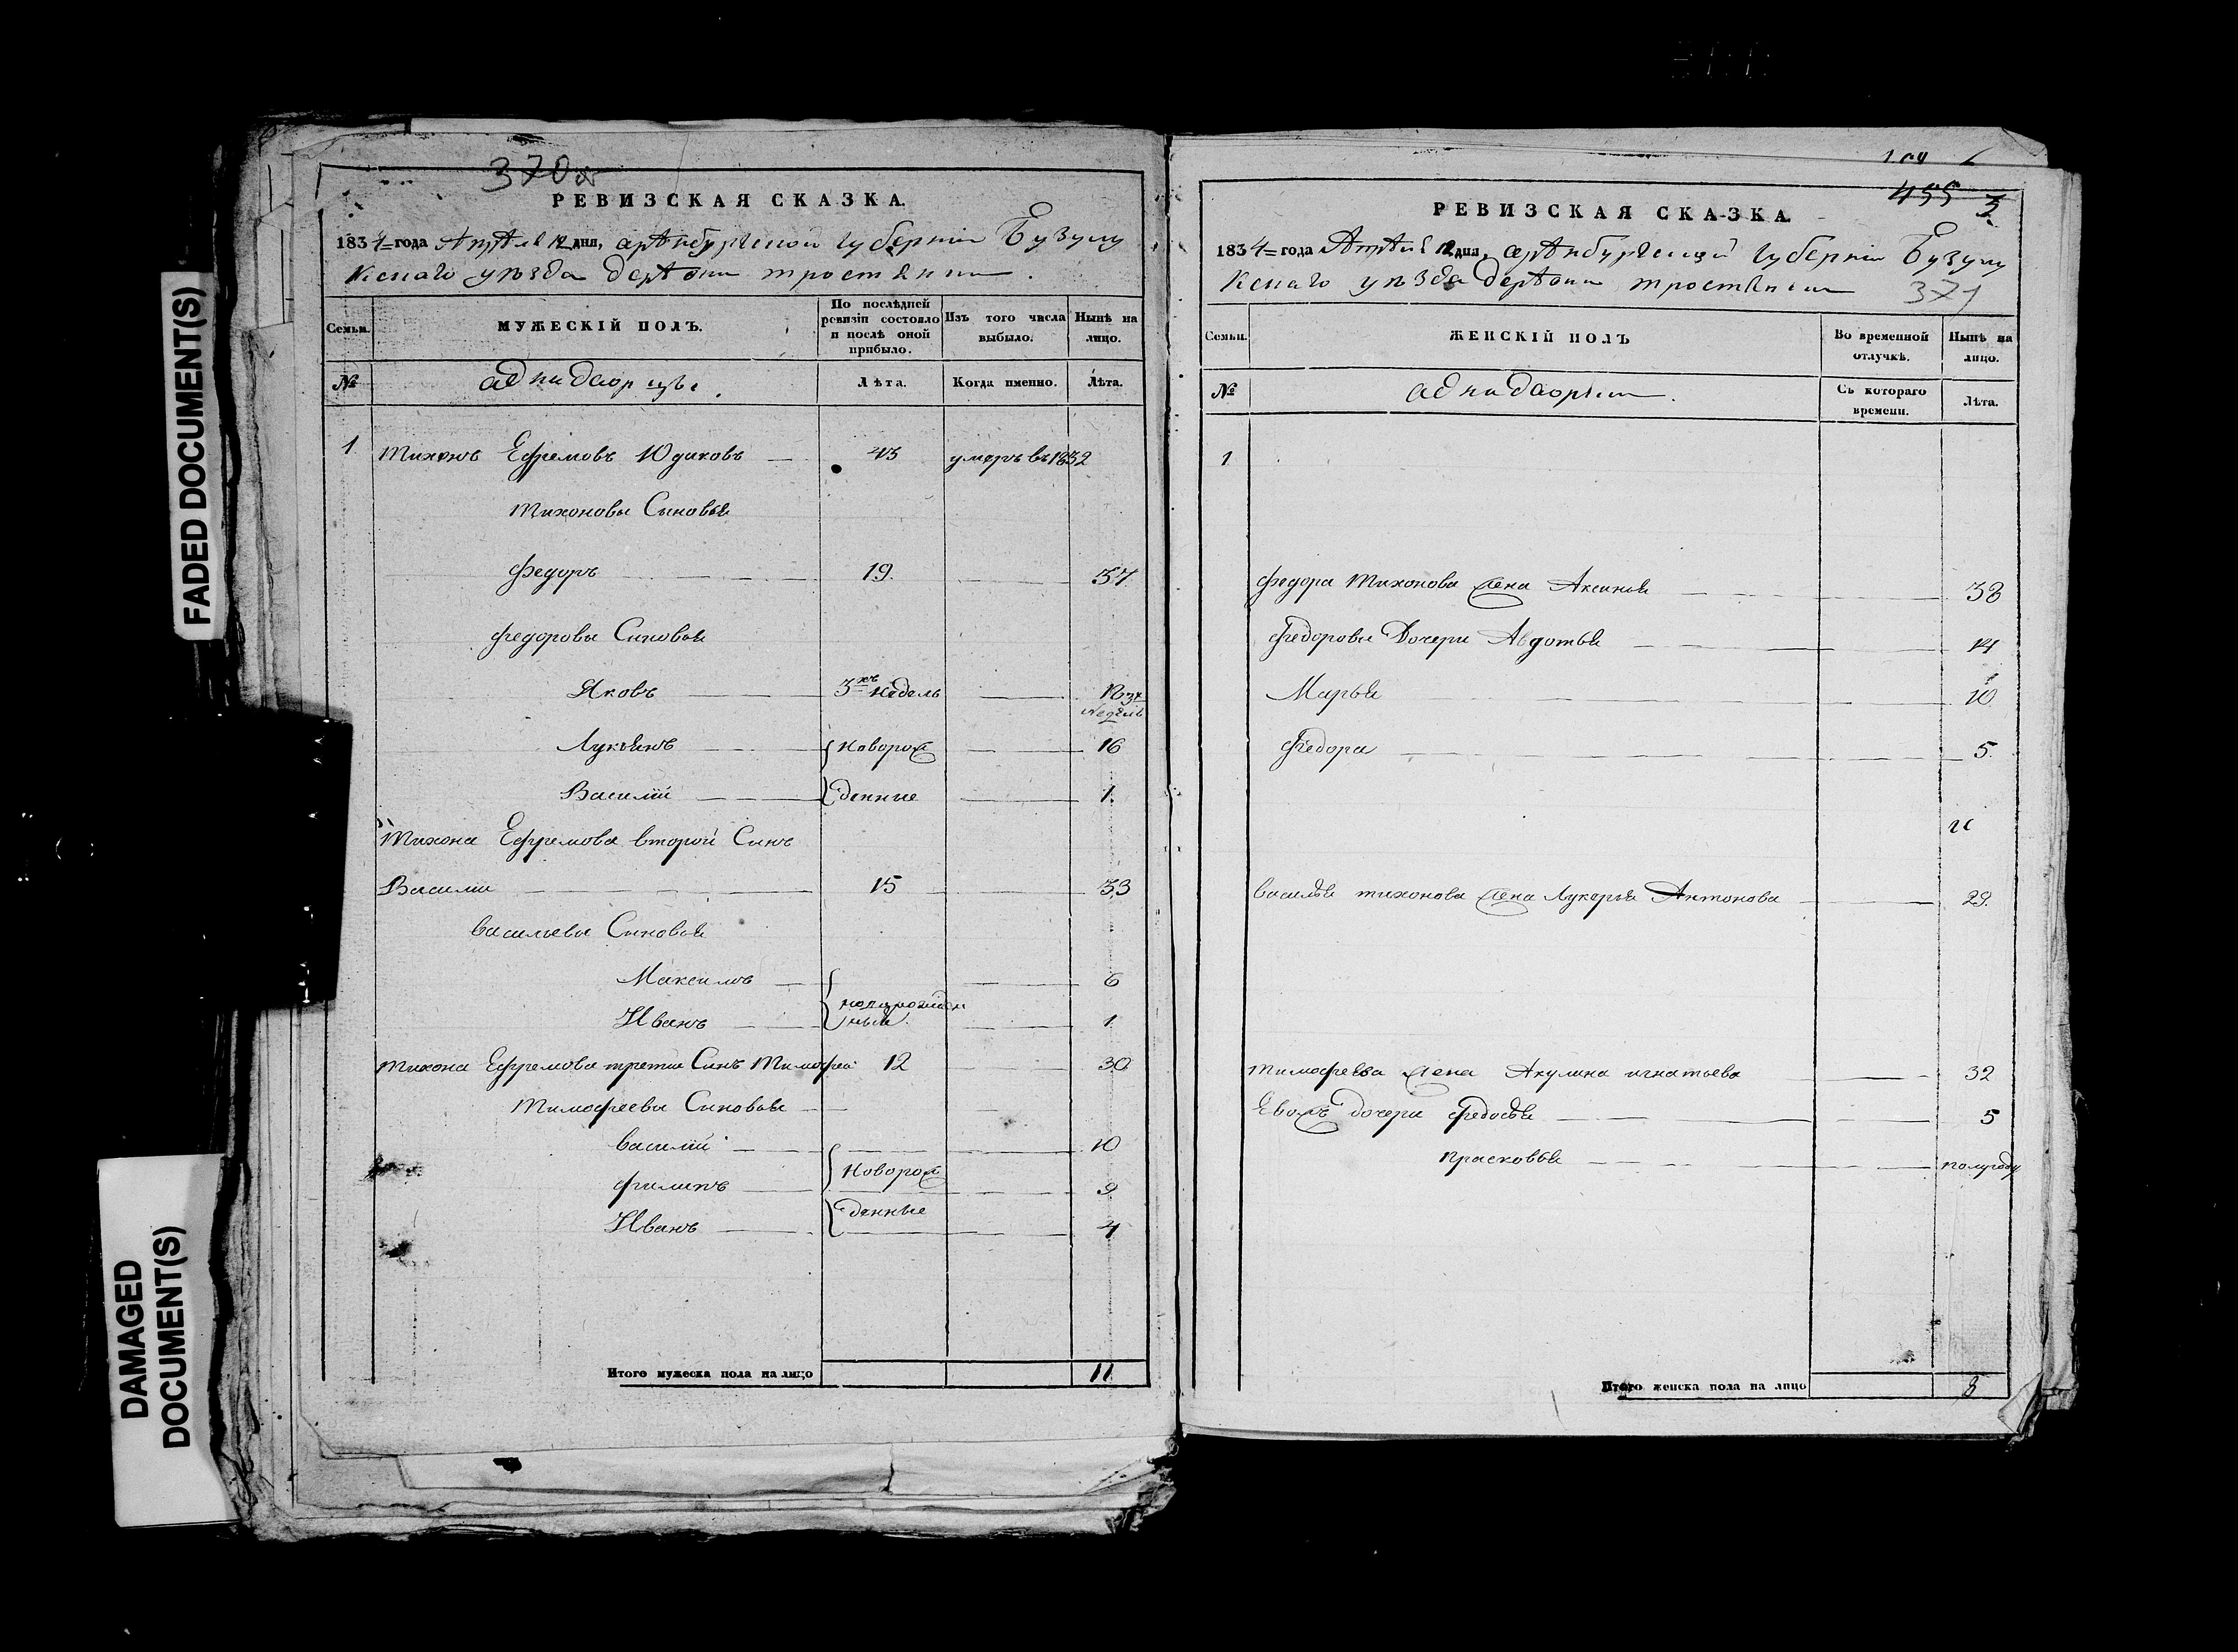 FADED DOCUMENT(S)
DAMAGED DOCUMENT(S)
370
РЕВИЗСКАЯ СКАЗКА.
1834 года Апреля 12 дня, аренбургской губернии Бузулу
кскаго уѣзда деревни тростянки.
Семьи.
МУЖЕСКІЙ ПОЛЪ.
По послѣдней ревизіи состояло и послѣ оной прибыло.
Изъ того числа выбыло.
Нынѣ на лицо.
№
аднидворцы.
Лѣта.
Когда именно.
Лѣта.
1 Тихонъ Ефремовъ Юдиковъ — 45 умеръ въ 1832
Тихоновы Сыновья
Федоръ 19. 37
Федоровы Сыновья
Яковъ 3хъ недель
недель
Лукьянъ новорож 16
Василий денные 1.
Тихона Ефремова второй Сынъ
Василий 15 33
Васильевы Сыновья
Максимъ 6
Иванъ 1
Тихона Ефремова третий Сынъ Тимофей 12 30
Тимофеевы Сыновья
Василий 10
Филипъ новорож 9
Иванъ денные 4
Итого мужеска пола на лицо 11
455
3
РЕВИЗСКАЯ СКАЗКА.
1834 года Апреля 12 дня, аренбургской губернии Бузулу
кскаго уѣзда деревни тростянки
371
Семьи.
ЖЕНСКІЙ ПОЛЪ
Во временной отлучкѣ.
Нынѣ на лицо.
№
аднидворки.
Съ котораго времени.
Лѣта.
1
Федора Тихонова жена Аксинья 38
Федоровы Дочери Авдотья 14
Марья 10
Федора 5.
Василья тихонова жена Лукерья Антонова 29.
Тимофеева жена Акулина игнатьева 32
Евожъ дочери Федосья 5
прасковья полугоду
Итого женска пола на лицо 8